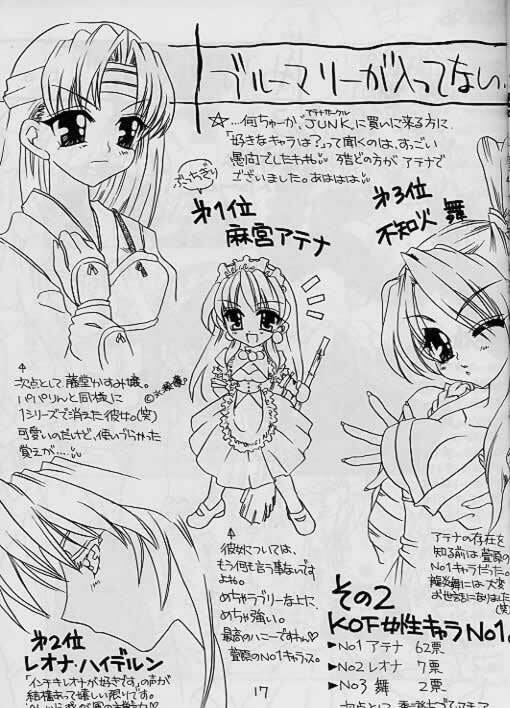 ブルーマリーが入ってない
☆…何ちゅーか、JUNKに買いに来る方に、
「好きなキャラは?」って聞くのは、すっごい
愚問でしたわね 殆どの方がアテナで
ございました。あははは
ぶっちぎり
第1位
麻宮アテナ
第3位
不知火 舞
次点として、藤堂かすみ嬢。
同様に
1シリーズで消えた彼女。(笑)
可愛いのだけど、使いづらかった
覚えが…
彼女については、
もう何も言う事ないです
よね。
めちゃラブリーな上に、
めちゃ強い。
最高のハニーですわん♡
萱原のNo1キャラっス。
アテナの存在を
知る前は萱原の
No1キャラだった。
龍炎舞には大変
お世話になりました
(笑)
第2位
レオナ・ハイデルン
「インチキレオナが好きです」の声が
結構あって嬉しい限りです。
その2
KOF女性キャラNo1.
▶No1 アテナ 62票
▶No2 レオナ 7票
▶No3 舞 2票
17